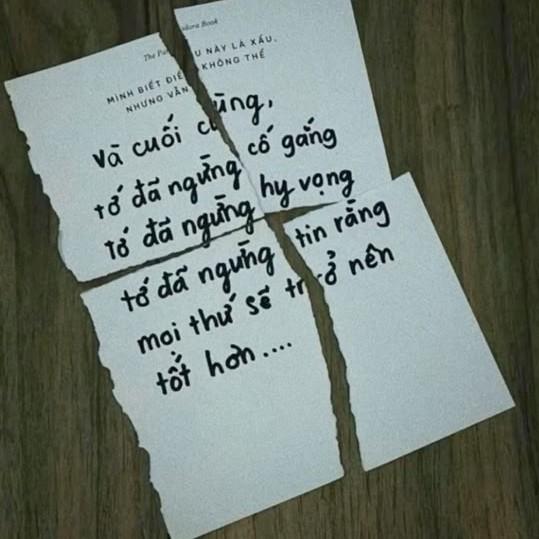 The Pandora Book
MÌNH BIẾT ĐIỀU NÀY LÀ XẤU,
NHƯNG VẪN KHÔNG THỂ
Và cuối cùng,
tớ đã ngừng cố gắng
tớ đã ngừng hy vọng
tớ đã ngừng tin rằng
mọi thứ sẽ trở nên
tốt hơn....